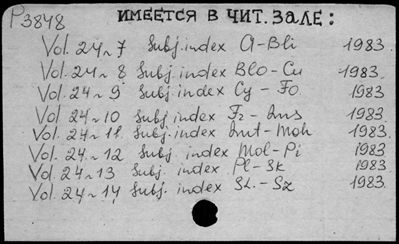 P3848 ИМЕЕТСЯ В ЧИТ. ЗАЛЕ:
Vol. 24 N 7 Subj. index A-Bli 1983.
Vol. 24 N 8 Subj. index Blo-Cu 1983.
Vol. 24 N 9 Subj. index Cy-Fo 1983
Vol 24 N 10 Subj index Fr-Ins 1983.
Vol. 24 N 11. Subj. index Int-Moh 1983.
Vol. 24. N 12 Subj index Mol-Pi 1983
Vol. 24 N 13 Subj. index Pl-Sk 1983
Vol. 24 N 14 Subj. index SL.-Sz 1983.